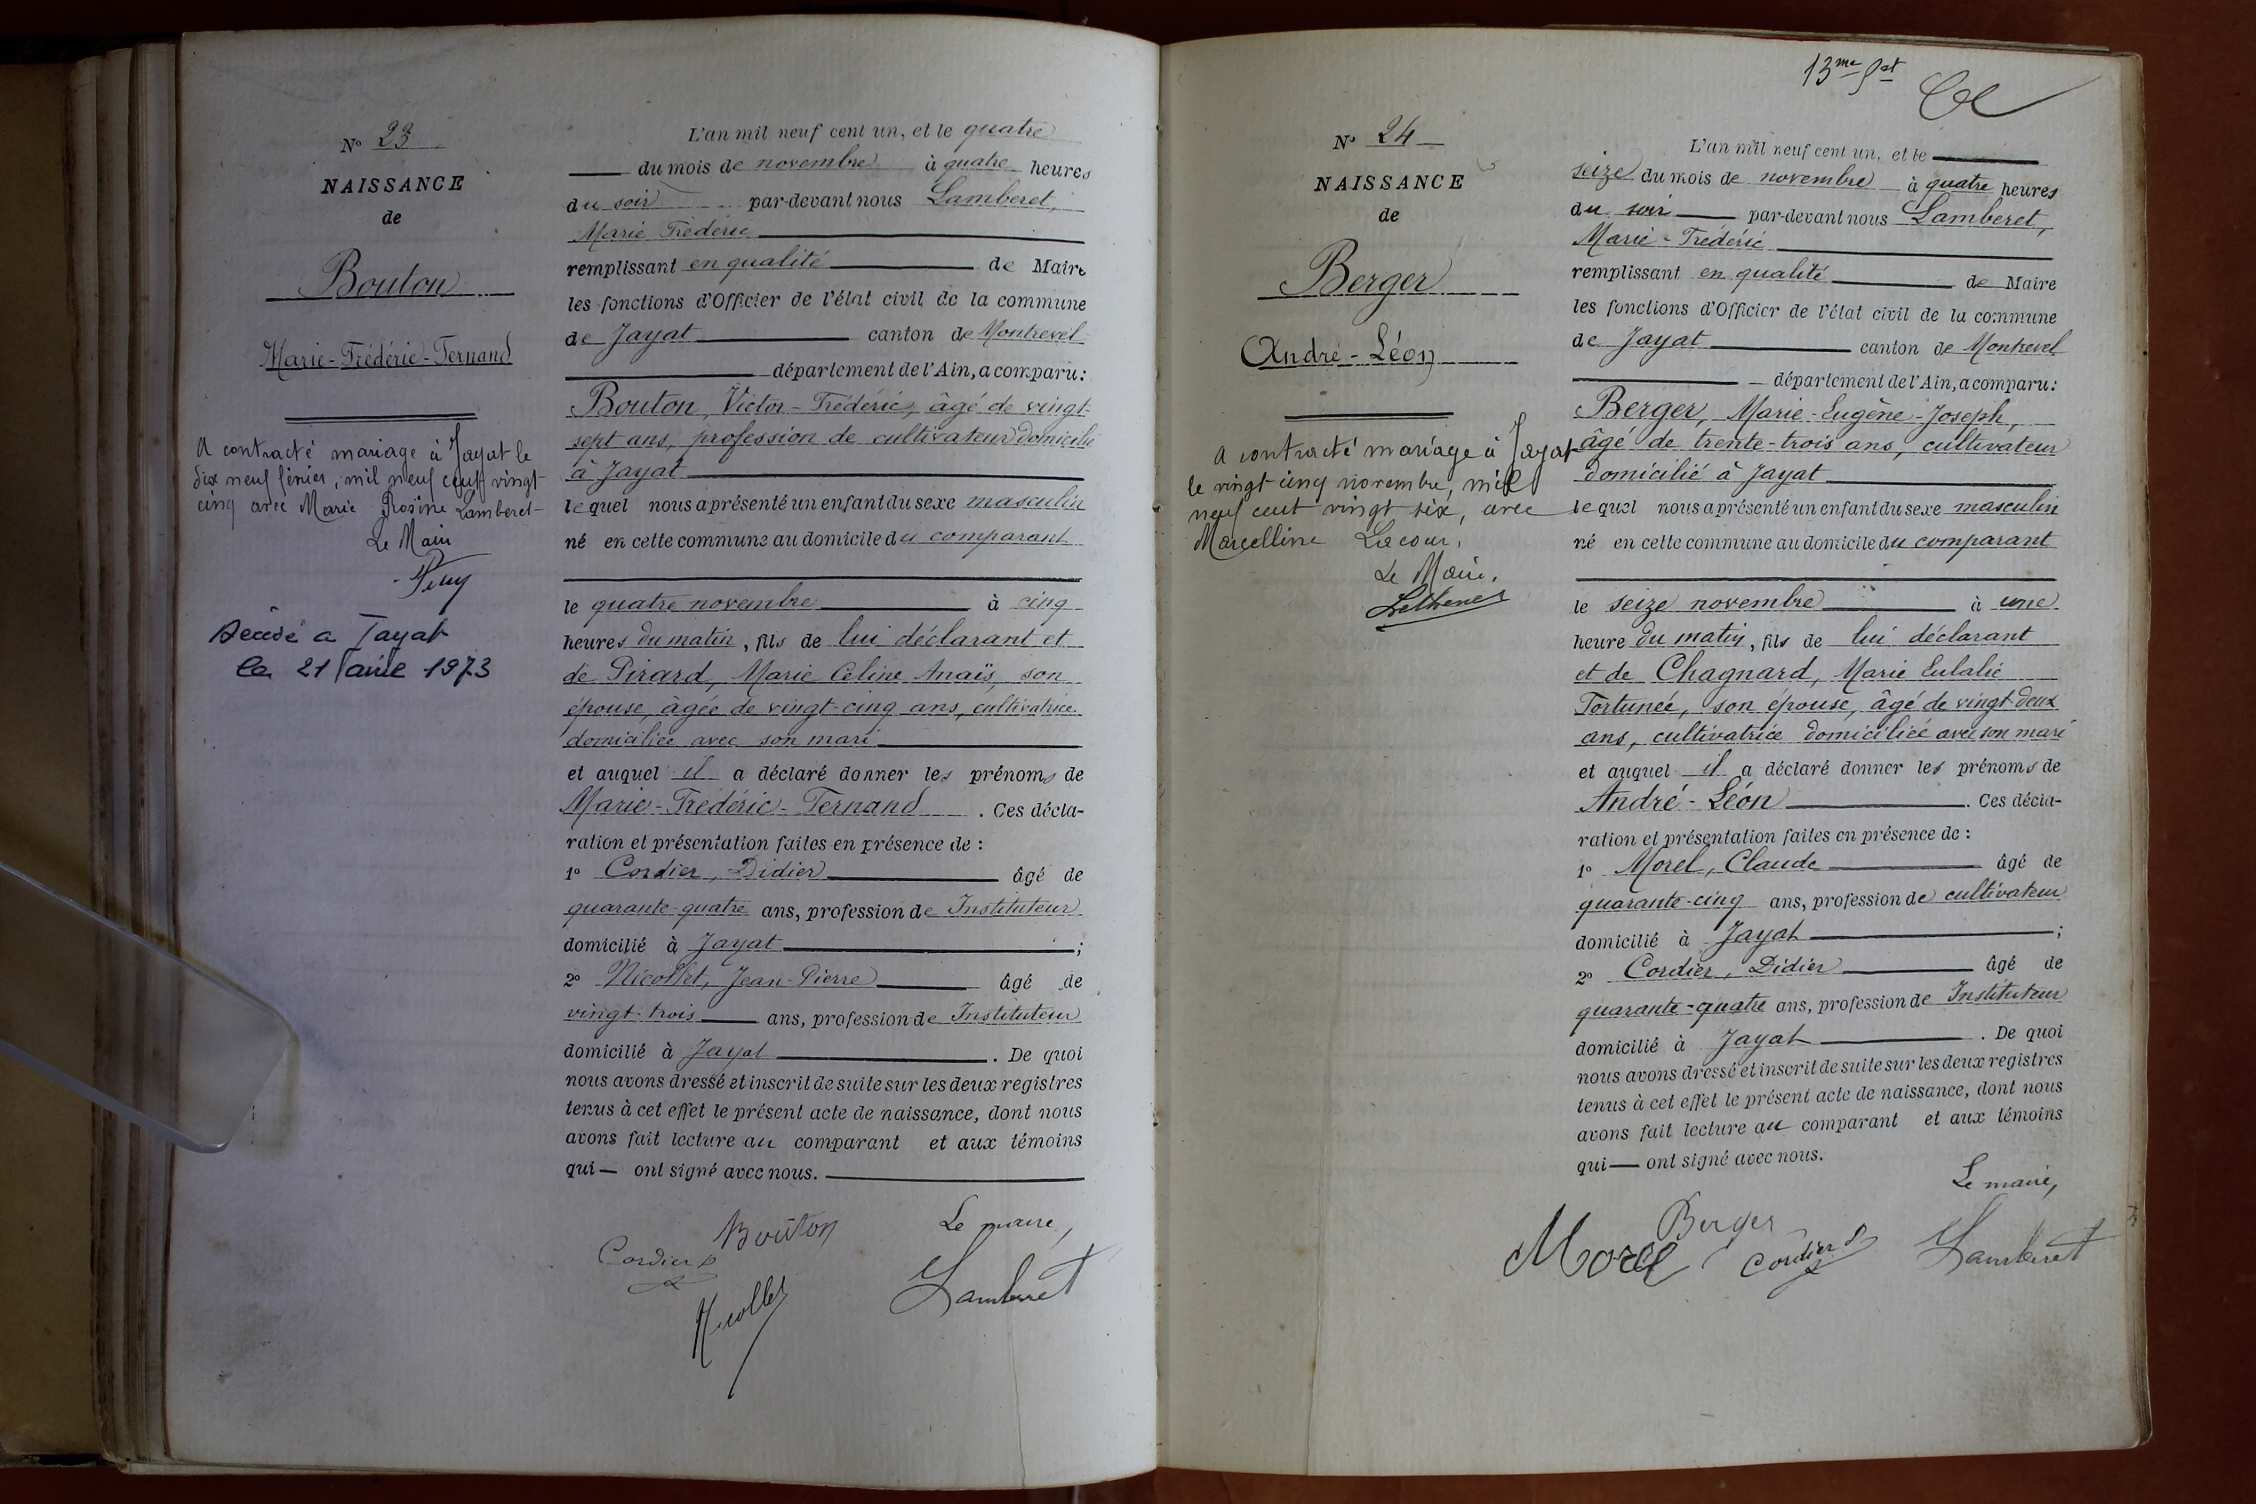 N° 23
NAISSANCE
de
Bouton
Marie-Frédéric-Fernand
A contracté mariage à Jayat le
dix neuf février, mil neuf cent vingt
cinq avec Marie Rosine Lamberet
Le Maire
Décédé a Jayat
le 21 1973
L'an mil neuf cent un, et le quatre
du mois de novembre à quatre heures
du soir par-devant nous Lamberet,
Marie Frédéric
remplissant en qualité de Maire
les fonctions d'Officier de l'état civil de la commune
de Jayat canton de Montrevel
département de l'Ain, a comparu :
Bouton, Victor-Frédéric, âgé de vingt-
sept ans, profession de cultivateur domicilié
à Jayat
lequel nous a présenté un enfant du sexe masculin
né en cette commune au domicile du comparant
le quatre novembre à cinq
heures du matin, fils de lui déclarant et
de Pirard, Marie Celine Anaïs, son
épouse, âgée de vingt-cinq ans, cultivatrice
domiciliée avec son mari
et auquel il a déclaré donner les prénoms de
Marie-Frédéric-Fernand. Ces décla-
ration et présentation faites en présence de :
1° Cordier, Didier âgé de
quarante-quatre ans, profession de Instituteur
domicilié à Jayat ;
2° Nicollet, Jean-Pierre âgé de
vingt-trois ans, profession de Instituteur
domicilié à Jayat. De quoi
nous avons dressé et inscrit de suite sur les deux registres
tenus à cet effet le présent acte de naissance, dont nous
avons fait lecture au comparant et aux témoins
qui — ont signé avec nous.
Bouton
Le maire,
Cordier
Nicollet
Lamberet
13me fet
N° 24
NAISSANCE
de
Berger
André-Léon
A contracté mariage à Jayat
le vingt cinq novembre, mil
neuf cent vingt six, avec
Marcelline Lacour.
Le Maire.
L'an mil neuf cent un, et le
seize du mois de novembre à quatre heures
du soir par-devant nous Lamberet,
Marie-Frédéric
remplissant en qualité de Maire
les fonctions d'Officier de l'état civil de la commune
de Jayat canton de Montrevel
département de l'Ain, a comparu :
Berger, Marie-Eugène-Joseph,
âgé de trente-trois ans, cultivateur
domicilié à Jayat
lequel nous a présenté un enfant du sexe masculin
né en cette commune au domicile du comparant
le seize novembre à une
heure du matin, fils de lui déclarant
et de Chagnard, Marie Eulalie
Fortunée, son épouse, âgé de vingt deux
ans, cultivatrice domiciliée avec son mari
et auquel il a déclaré donner les prénoms de
André-Léon. Ces décla-
ration et présentation faites en présence de :
1° Morel, Claude âgé de
quarante-cinq ans, profession de cultivateur
domicilié à Jayat ;
2° Cordier, Didier âgé de
quarante-quatre ans, profession de Instituteur
domicilié à Jayat. De quoi
nous avons dressé et inscrit de suite sur les deux registres
tenus à cet effet le présent acte de naissance, dont nous
avons fait lecture au comparant et aux témoins
qui — ont signé avec nous.
Le maire,
Berger
Morel Cordier Lamberet